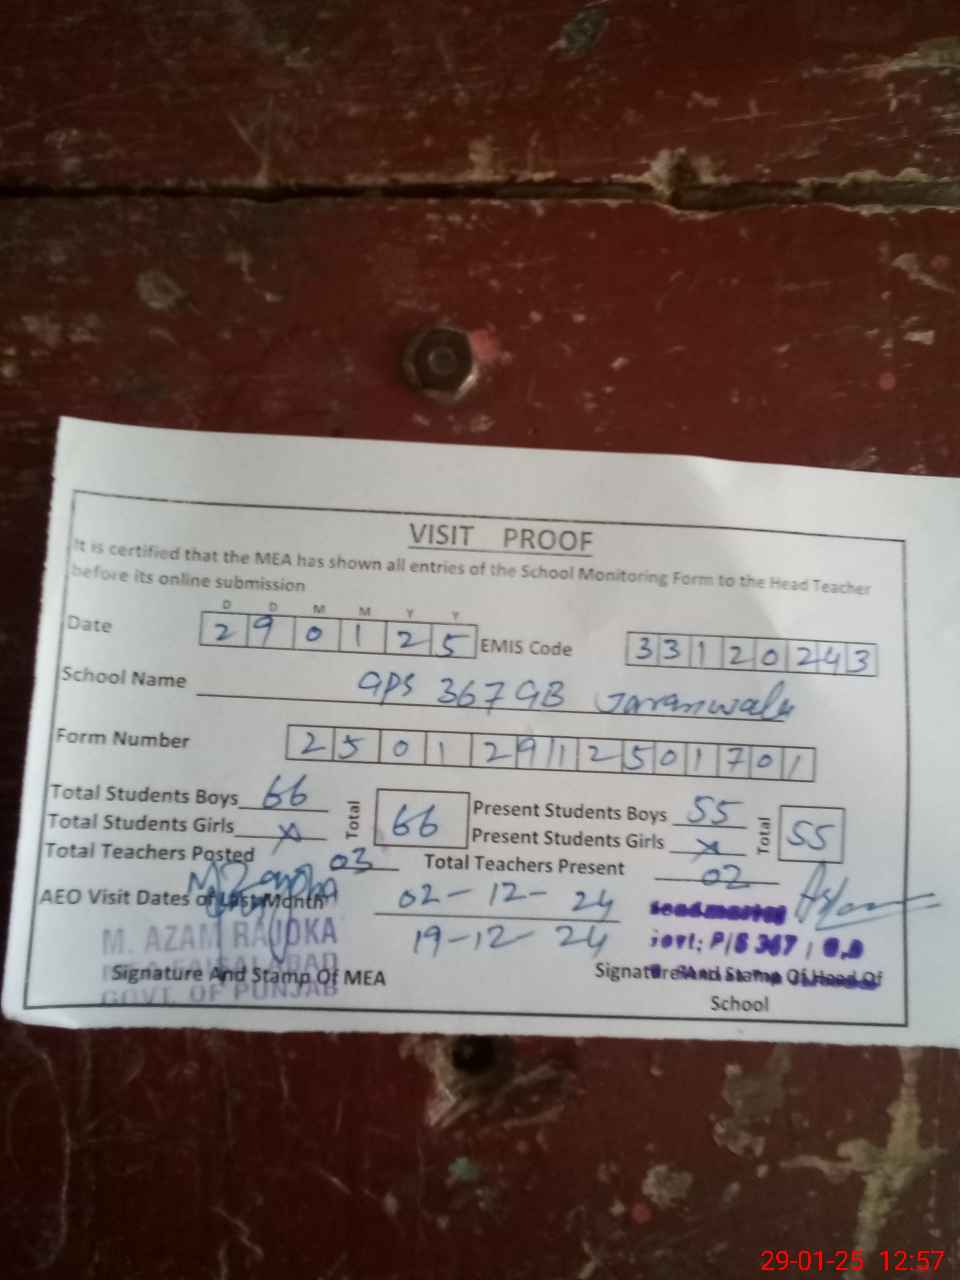 VISIT PROOF
It is certified that the MEA has shown all entries of the School Monitoring Form to the Head Teacher
before its online submission
D D M M Y Y
Date 2 9 0 1 2 5 EMIS Code 3 3 1 2 0 2 4 3
School Name GPS 367 GB Jaranwala
Form Number 2 5 0 1 2 9 1 2 5 0 1 7 0 1
Total Students Boys 66 Total 66 Present Students Boys 55 Total 55
Total Students Girls x Present Students Girls x
Total Teachers Posted 03 Total Teachers Present 02
AEO Visit Dates of Last Month 02-12-24
19-12-24
M. AZAM RAUOKA
GOVT. OF PUNJAB
P/S 367
Signature And Stamp Of MEA
Signature And Stamp Of Head Of
School
29-01-25 12:57